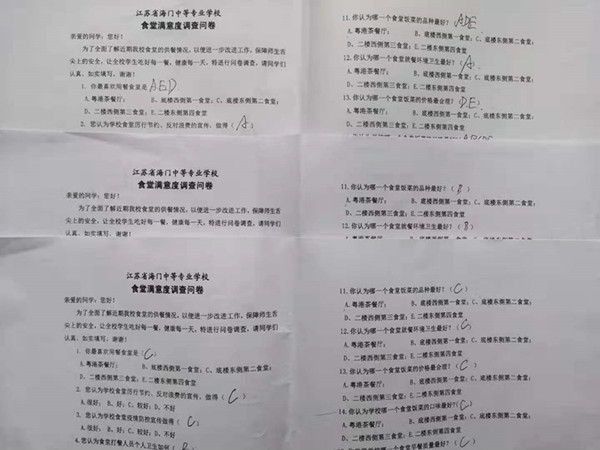 江苏省海门中等专业学校
食堂满意度调查问卷
亲爱的同学：您好！
为了全面了解近期我校食堂的供餐情况，以便进一步改进工作，保障师生舌
尖上的安全，让全校学生吃好每一餐，健康每一天，特进行问卷调查，请同学们
认真、如实填写。谢谢！
1. 你最喜欢用餐食堂是（AED
A.粤港茶餐厅； B.底楼西侧第一食堂；C、底楼东侧第二食堂；
D、二楼西侧第三食堂；E.二楼东侧第四食堂
2. 您认为学校食堂厉行节约、反对浪费的宣传，做得（ A ）
11.你认为哪一个食堂饭菜的品种最好？（ADE）
A.粤港茶餐厅； B、底楼西侧第一食堂；C、底楼东侧第二食堂；
D、二楼西侧第三食堂；E.二楼东侧第四食堂
12.你认为哪一个食堂就餐环境卫生最好？（A）
A.粤港茶餐厅； B、底楼西侧第一食堂；C、底楼东侧第二食堂；
D、二楼西侧第三食堂；E.二楼东侧第四食堂
13.你认为哪一个食堂饭菜的价格最合理？（DE）
A.粤港茶餐厅； B、底楼西侧第一食堂；C、底楼东侧第二食堂；
D、二楼西侧第三食堂；E.二楼东侧第四食堂
江苏省海门中等专业学校
食堂满意度调查问卷
亲爱的同学：您好！
为了全面了解近期我校食堂的供餐情况，以便进一步改进工作，保障师生舌
尖上的安全，让全校学生吃好每一餐，健康每一天，特进行问卷调查，请同学们
认真、如实填写。谢谢！
11.你认为哪一个食堂饭菜的品种最好？（B）
A.粤港茶餐厅； B、底楼西侧第一食堂；C、底楼东侧第二食堂；
D、二楼西侧第三食堂；E.二楼东侧第四食堂
12.你认为哪一个食堂就餐环境卫生最好？（B）
江苏省海门中等专业学校
食堂满意度调查问卷
亲爱的同学：您好！
为了全面了解近期我校食堂的供餐情况，以便进一步改进工作，保障师生舌
尖上的安全，让全校学生吃好每一餐，健康每一天，特进行问卷调查，请同学们
认真、如实填写。谢谢！
1. 你最喜欢用餐食堂是（C）
A.粤港茶餐厅； B.底楼西侧第一食堂；C、底楼东侧第二食堂；
D、二楼西侧第三食堂；E.二楼东侧第四食堂
2. 您认为学校食堂厉行节约、反对浪费的宣传，做得（ C ）
A.很好； B、好；C、较好；D、不好
3. 您认为学校食堂疫情防控宣传做得（ C ）
A.很好； B、好；C、较好；D、不好
4.您认为食堂打餐人员个人卫生如何（ B
11.你认为哪一个食堂饭菜的品种最好？（C）
A.粤港茶餐厅； B、底楼西侧第一食堂；C、底楼东侧第二食堂；
D、二楼西侧第三食堂；E.二楼东侧第四食堂
12.你认为哪一个食堂就餐环境卫生最好？（C）
A.粤港茶餐厅； B、底楼西侧第一食堂；C、底楼东侧第二食堂；
D、二楼西侧第三食堂；E.二楼东侧第四食堂
13.你认为哪一个食堂饭菜的价格最合理？（C）
A.粤港茶餐厅； B、底楼西侧第一食堂；C、底楼东侧第二食堂；
D、二楼西侧第三食堂；E.二楼东侧第四食堂
14.你认为学校哪一个食堂饭菜的口味最好？（C）
A.粤港茶餐厅； B、底楼西侧第一食堂；C、底楼东侧第二食堂；
D、二楼西侧第三食堂；E.二楼东侧第四食堂